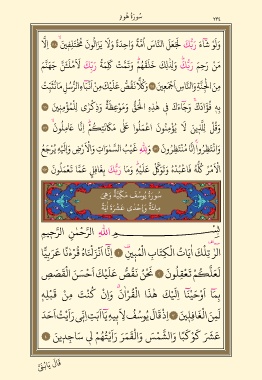 سُورَةُ هُودٍ
٢٣٤
وَلَوْ شَٓاءَ رَبُّكَ لَجَعَلَ النَّاسَ اُمَّةً وَاحِدَةً وَلَا يَزَالُونَ مُخْتَلِف۪ينَۙ اِلَّا
مَنْ رَحِمَ رَبُّكَۜ وَلِذٰلِكَ خَلَقَهُمْۜ وَتَمَّتْ كَلِمَةُ رَبِّكَ لَاَمْلَـَٔنَّ جَهَنَّمَ
مِنَ الْجِنَّةِ وَالنَّاسِ اَجْمَع۪ينَ وَكُلًّا نَقُصُّ عَلَيْكَ مِنْ اَنْبَٓاءِ الرُّسُلِ مَا نُثَبِّتُ
بِه۪ فُؤٰادَكَۚ وَجَٓاءَكَ ف۪ي هٰذِهِ الْحَقُّ وَمَوْعِظَةٌ وَذِكْرٰى لِلْمُؤْمِن۪ينَ
وَقُلْ لِلَّذ۪ينَ لَا يُؤْمِنُونَ اعْمَلُوا عَلٰى مَكَانَتِكُمْۜ اِنَّا عَامِلُونَۙ
وَانْتَظِرُواۚ اِنَّا مُنْتَظِرُونَ وَلِلّٰهِ غَيْبُ السَّمٰوَاتِ وَالْاَرْضِ وَاِلَيْهِ يُرْجَعُ
الْاَمْرُ كُلُّهُ فَاعْبُدْهُ وَتَوَكَّلْ عَلَيْهِۜ وَمَا رَبُّكَ بِغَافِلٍ عَمَّا تَعْمَلُونَ
سُورَةُ يُوسُفَ مَكِّيَّةٌ وَهِيَ
مِائَةٌ وَاِحْدٰى عَشْرَةَ اٰيَةً
بِسْمِ اللّٰهِ الرَّحْمٰنِ الرَّح۪يمِ
الٓرٰ۠ تِلْكَ اٰيَاتُ الْكِتَابِ الْمُب۪ينِ۠ اِنَّٓا اَنْزَلْنَاهُ قُرْءٰنًا عَرَبِيًّا
لَعَلَّكُمْ تَعْقِلُونَ نَحْنُ نَقُصُّ عَلَيْكَ اَحْسَنَ الْقَصَصِ
بِمَٓا اَوْحَيْنَٓا اِلَيْكَ هٰذَا الْقُرْاٰنَۗ وَاِنْ كُنْتَ مِنْ قَبْلِه۪
لَمِنَ الْغَافِل۪ينَ اِذْ قَالَ يُوسُفُ لِاَب۪يهِ يَٓا اَبَتِ اِنّ۪ي رَاَيْتُ اَحَدَ
عَشَرَ كَوْكَبًا وَالشَّمْسَ وَالْقَمَرَ رَاَيْتُهُمْ ل۪ي سَاجِد۪ينَ
قَالَ يَابُنَيَّ